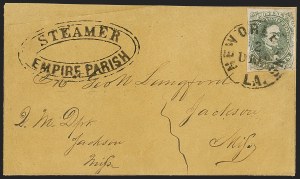 STEAMER
EMPIRE PARISH
NEW ORLEANS
LA.
Geo W. Lungford
Jackson
Miss
Q. M. Dpt
Jackson
Miss